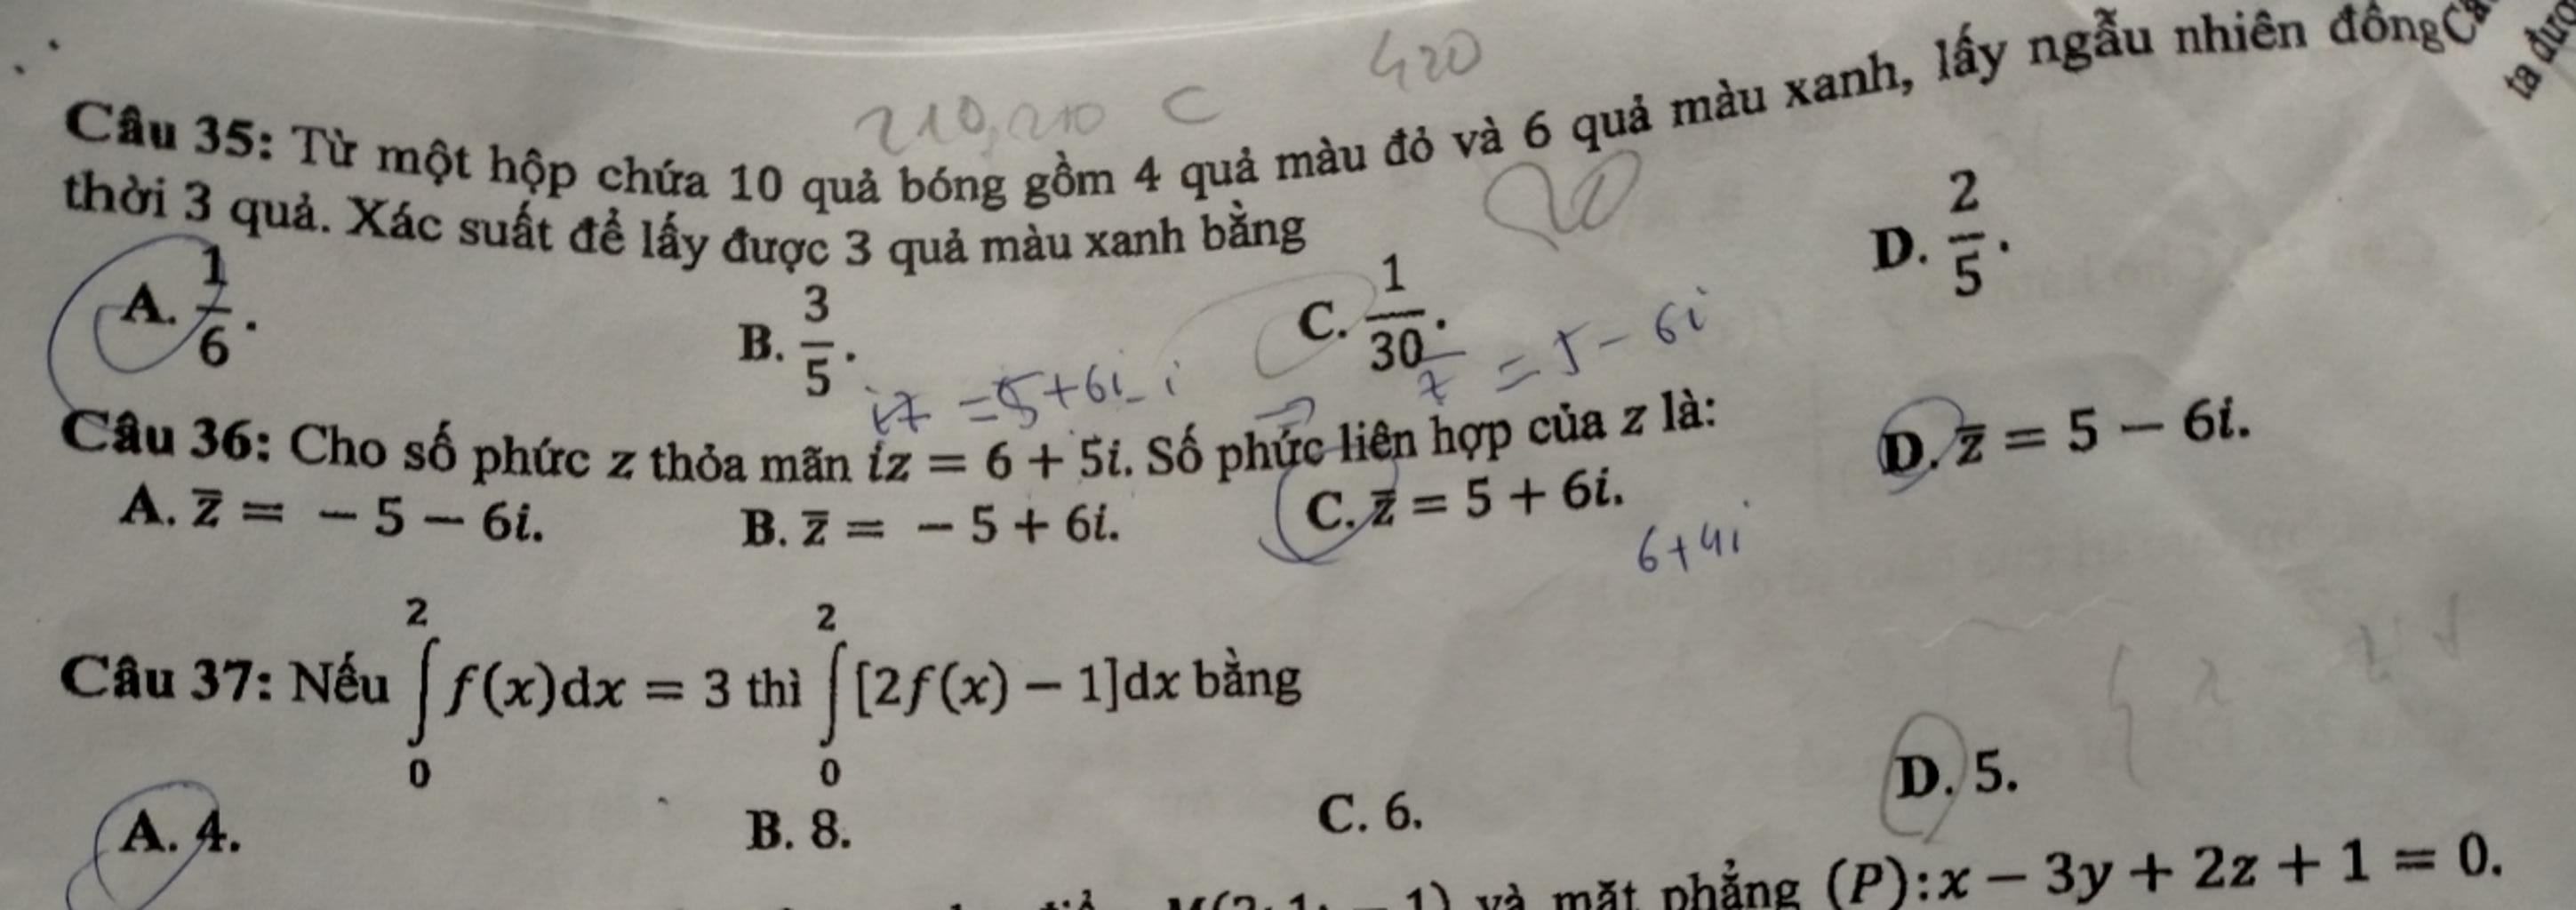 420
210,210 C
Câu 35: Từ một hộp chứa 10 quả bóng gồm 4 quả màu đỏ và 6 quả màu xanh, lấy ngẫu nhiên đồng
thời 3 quả. Xác suất để lấy được 3 quả màu xanh bằng
20
A. 1/6. B. 3/5. C. 1/30. D. 2/5.
iz = 5+6i z̄ = 5 - 6i
Câu 36: Cho số phức z thỏa mãn iz = 6 + 5i. Số phức liên hợp của z là:
A. z̄ = − 5 − 6i. B. z̄ = − 5 + 6i. C. z̄ = 5 + 6i. D. z̄ = 5 − 6i.
6+4i
Câu 37: Nếu ∫₀² f(x)dx = 3 thì ∫₀² [2f(x) − 1]dx bằng
A. 4. B. 8. C. 6. D. 5.
và mặt phẳng (P): x − 3y + 2z + 1 = 0.
ta được